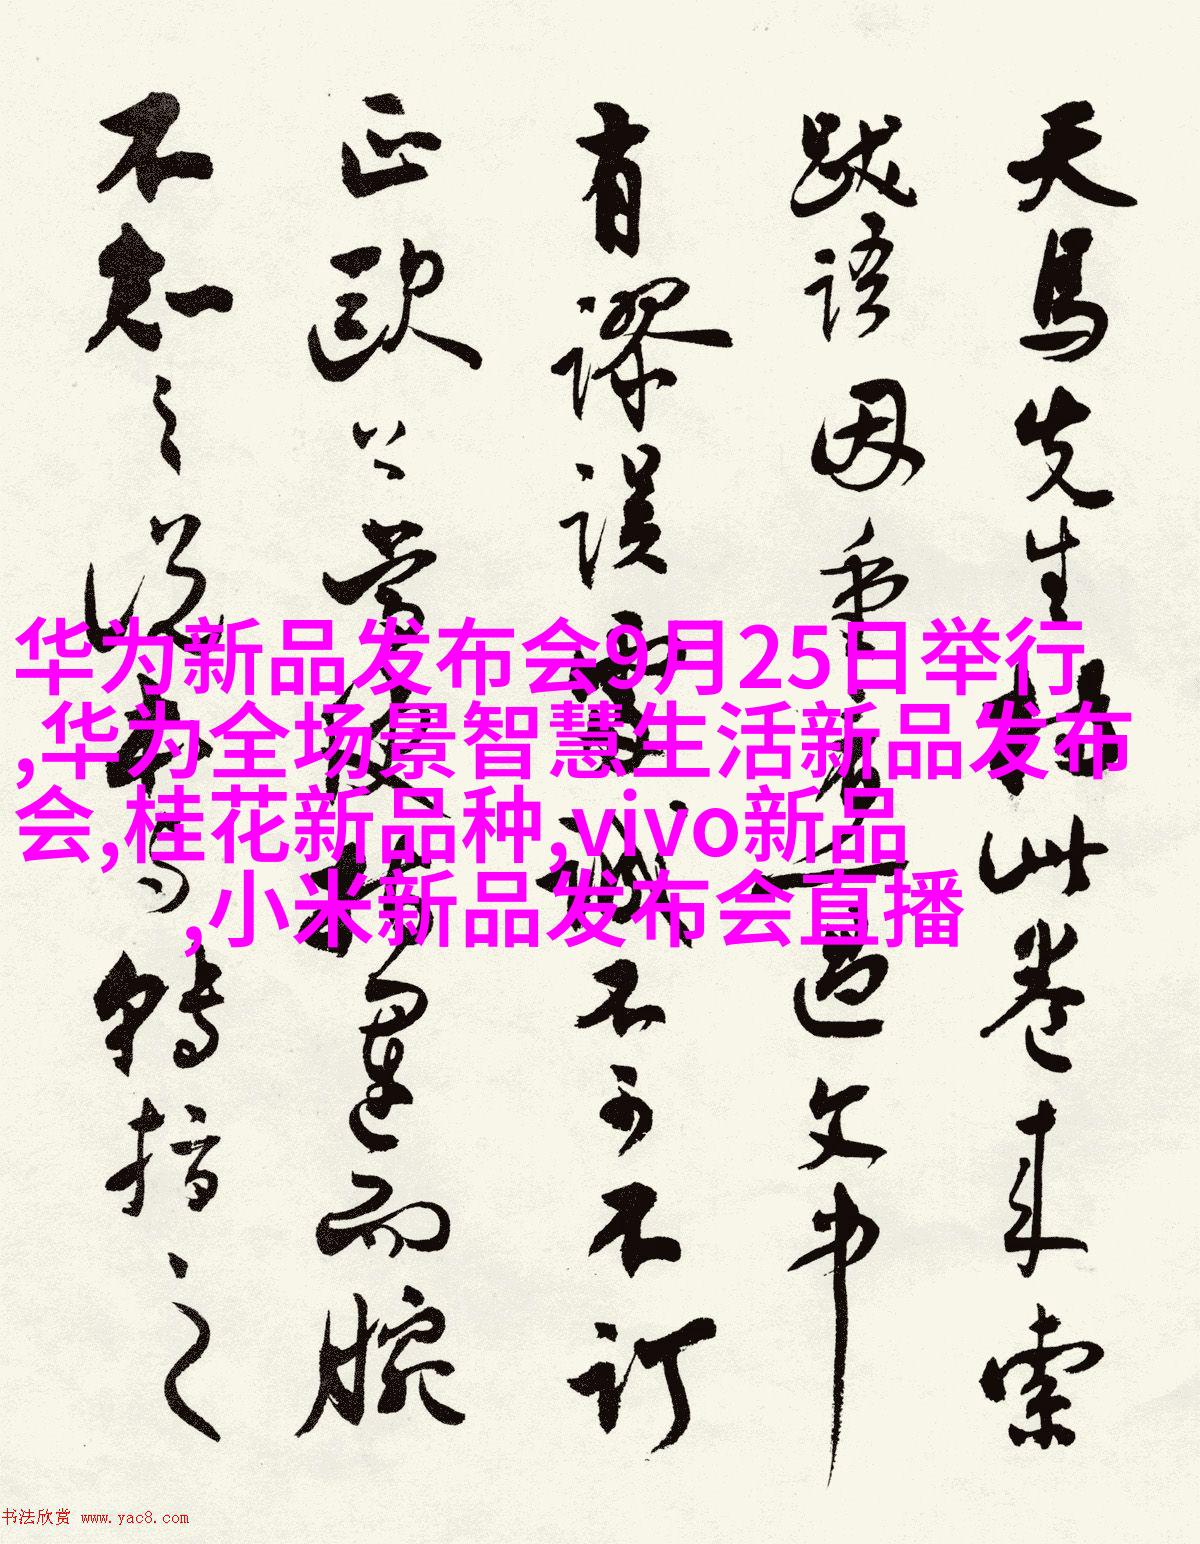 天馬先生携此卷来索
跋语因重看一过文中
有謬误
不可不订
正欧公尝
运而腕
不知之说
转指之
华为新品发布会9月25日举行
,华为全场景智慧生活新品发布
会,桂花新品种,vivo新品
,小米新品发布会直播
书法欣赏 www.yac8.com